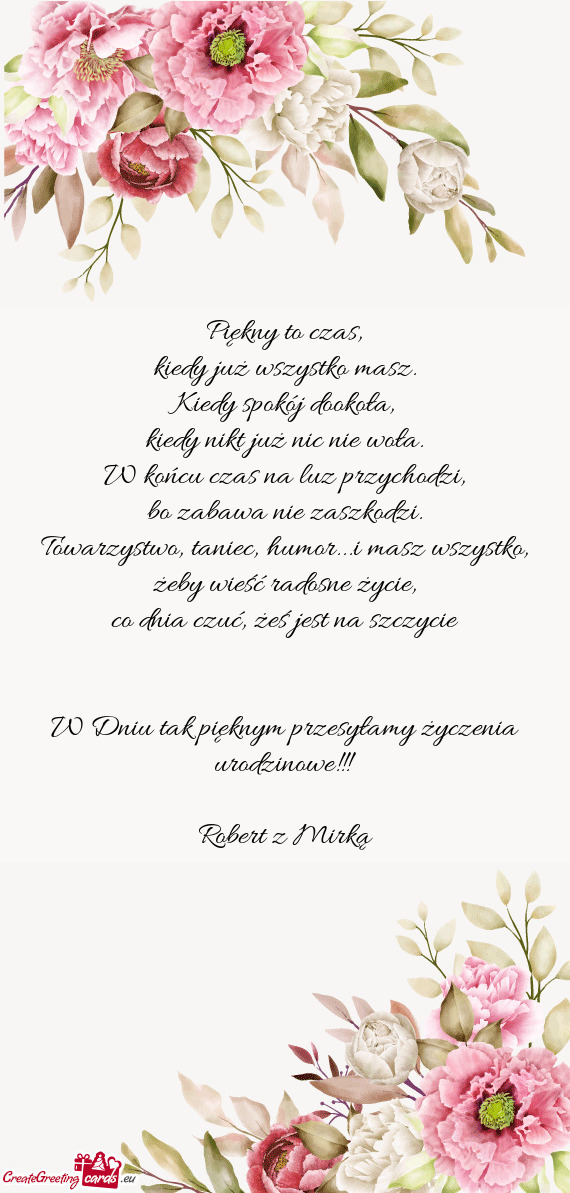 Piękny to czas,
kiedy już wszystko masz.
Kiedy spokój dookoła,
kiedy nikt już nic nie woła.
W końcu czas na luz przychodzi,
bo zabawa nie zaszkodzi.
Towarzystwo, taniec, humor...i masz wszystko,
żeby wieść radosne życie,
co dnia czuć, żeś jest na szczycie
W Dniu tak pięknym przesyłamy życzenia
urodzinowe!!!
Robert z Mirką
CreateGreeting cards .eu